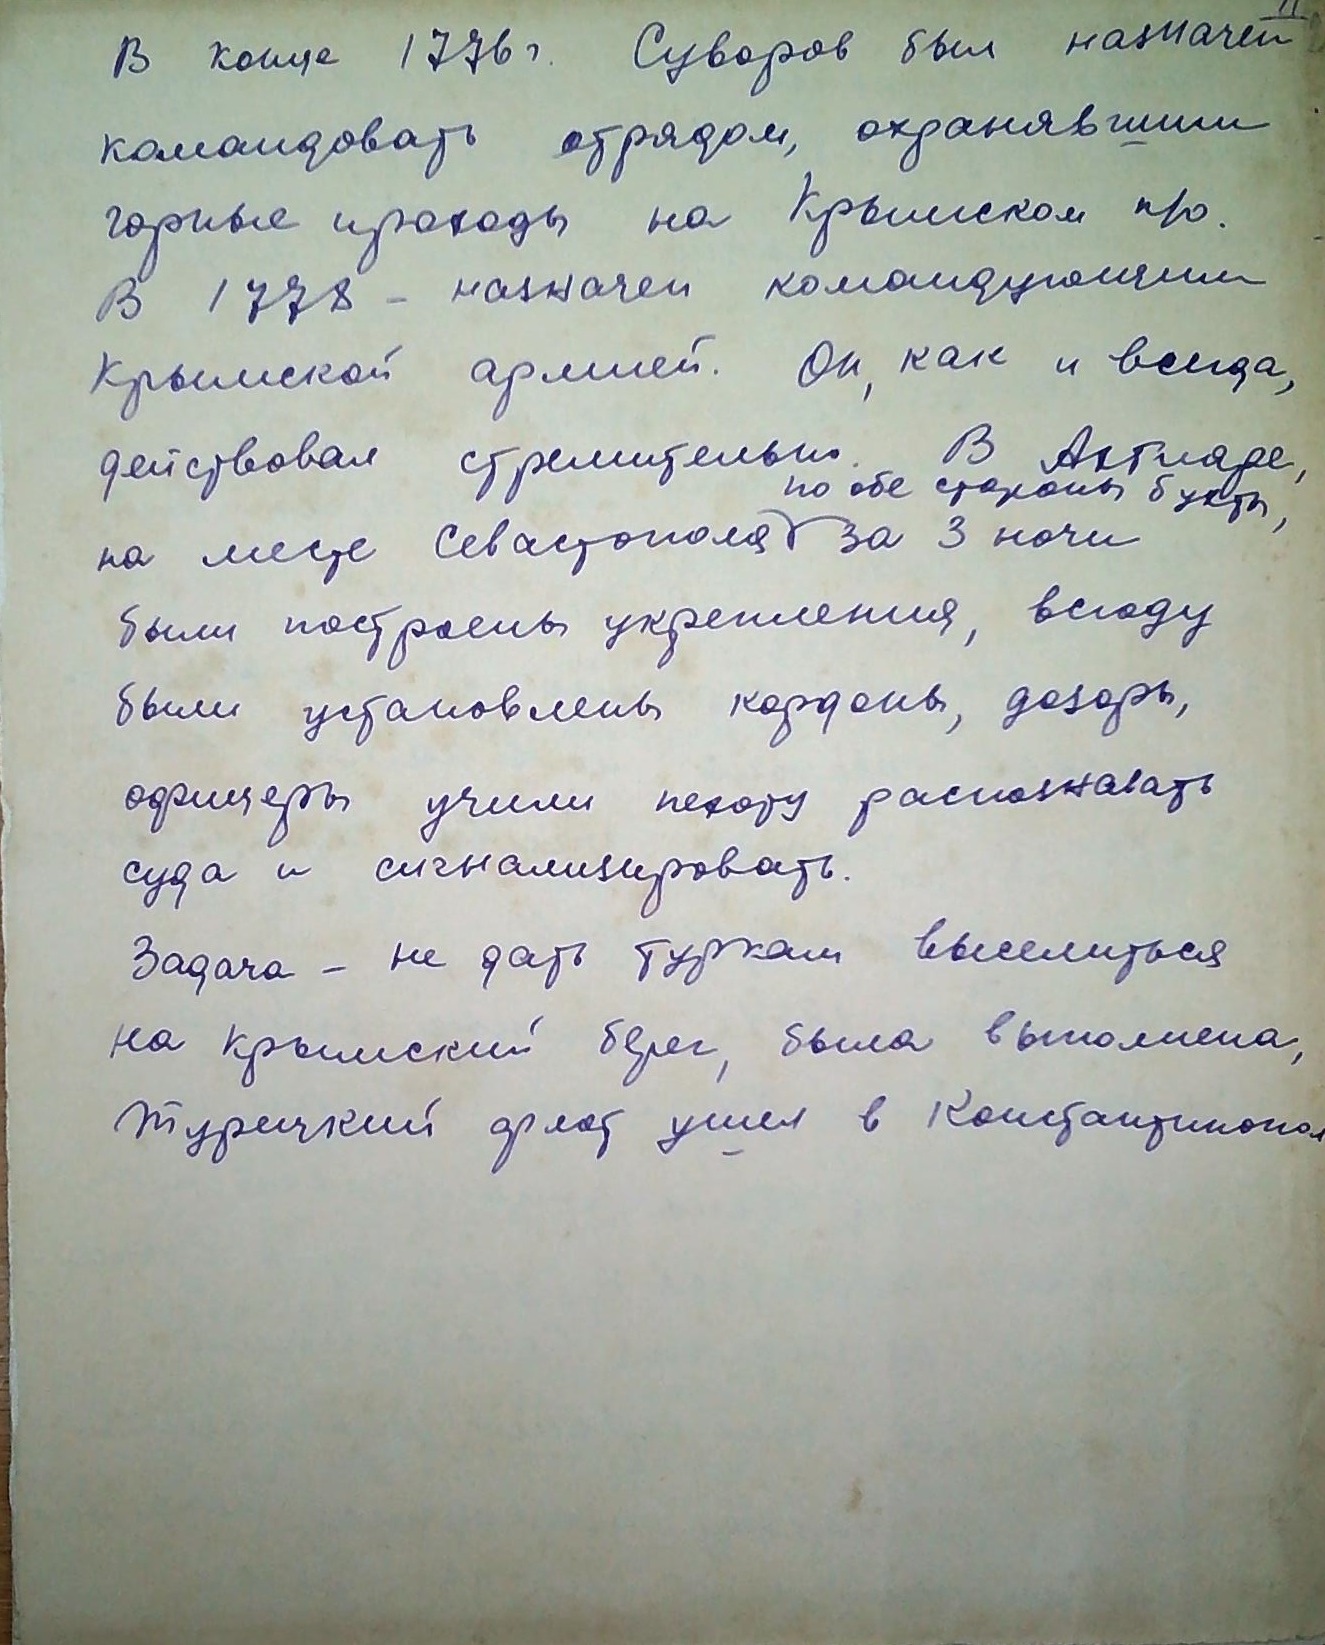 В конце 1776 г. Суворов был назначен
командовать отрядом, охранявшим
горные проходы на Крымском п/о.
В 1778 – назначен командующим
Крымской армией. Он, как и всегда,
действовал стремительно. В Ахтиаре,
по обе стороны бухты,
на месте Севастополя за 3 ночи
были построены укрепления, всюду
были установлены кордоны, дозоры,
офицеры учили пехоту распознавать
суда и сигнализировать.
Задача – не дать туркам выселиться
на крымский берег, была выполнена,
Турецкий флот ушел в Константинопол